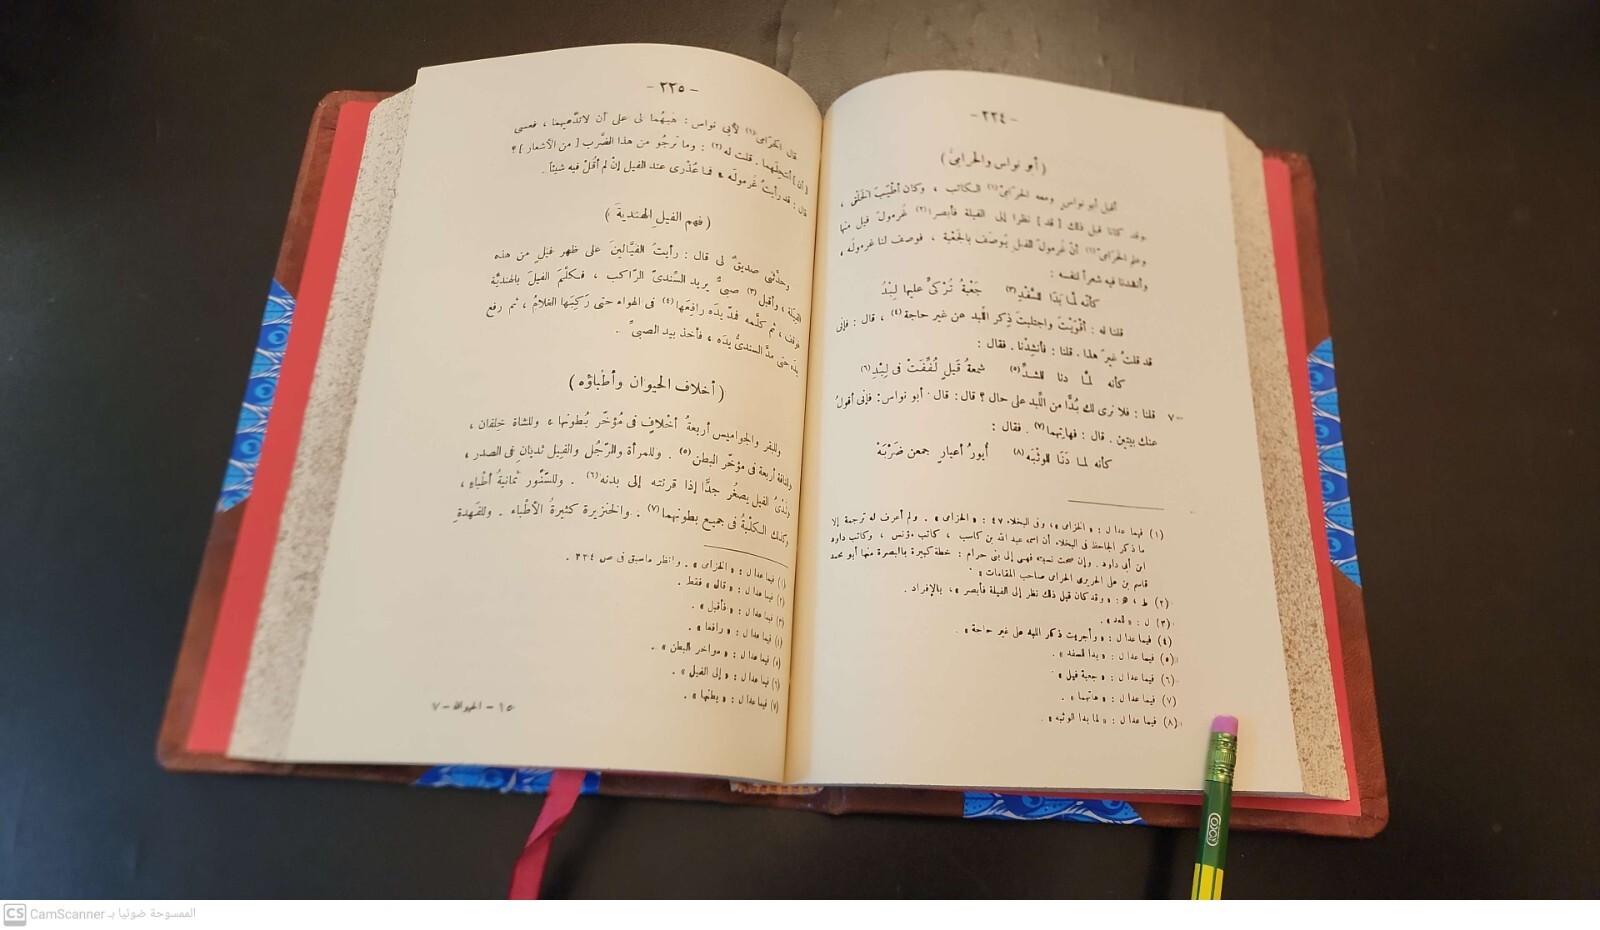 - ٢٢٤ -
( أبو نواس والحرامىّ )
أقبل أبو نواسٍ ومعه الحَرَامِىّ (١) الكاتب ، وكان أطْيَبَ الخَلْقِ ،
وقد كانا قبل ذلك [ قد ] نظرا إلى الفيلة فأبصرا (٢) غُرمولَ فيل منها
وعلم الحَرَامىّ (١) أنّ غُرمولَ الفيل يُوصَف بالجَعْبة ، فوصف لنا غرموله ،
وأنشدنا فيه شعراً لنفسه :
كأنّه لمَّا بَدَا للسَّفْدِ (٣) جَعْبةُ تُرْكىٍّ عليها لِبْدُ
قلنا له : أقْوَيْتَ واجتلبتَ ذِكر اللِّبد عن غير حاجة (٤) ، قال : فإنى
قد قلتُ غيرَ هذا . قلنا : فأنشِدْنا . فقال :
كأنه لمَّا دنا للشدِّ (٥) شمعةُ قَيلٍ لُفِّفَتْ فى لِبْدِ (٦)
٧٠ قلنا : فلا نرى لك بُدًّا من اللِّبد على حال ؟ قال : قال أبو نواس : فإنى أقولُ
عنك بيتين . قال : فهاتِهما (٧) . فقال :
كأنه لما دَنَا للوثْبَه (٨) أُيورُ أعيارٍ جمعن ضَرْبَهْ
(١) فيما عدا ل : « الخزامى » ، وفى البخلاء ٤٧ : « الحزامى » . ولم أعرف له ترجمة إلا
ما ذكر الجاحظ فى البخلاء أن اسمه عبد الله بن كاسب ، كاتب مؤنس ، وكاتب داود
ابن أبى داود . وإن صحت نسبته فهى إلى بنى حرام : خطة كبيرة بالبصرة منها أبو محمد
قاسم بن على الحريرى الحرامى صاحب المقامات .
(٢) ط ، ه : « وقد كان قبل ذلك نظر إلى الفيلة فأبصر » ، بالإفراد .
(٣) ل : « للعد » .
(٤) فيما عدا ل : « وأجريت ذكر اللبد على غير حاجة » .
(٥) فيما عدا ل : « بدا للسفد » .
(٦) فيما عدا ل : « جعبة فيل »
(٧) فيما عدا ل : « هاتهما » .
(٨) فيما عدا ل : « لما بدا الوثبه » .
- ٢٢٥ -
قال الحَرَامىّ (١) لأبى نواس : هَبْهُما لى على أن لاتدَّعيهما ، فعسى
[ أن ] أنتحِلَهما . قلت له (٢) : وما ترجُو من هذا الضَّرب [ من الأشعار ] ؟
قال : قد رأيتُ غُرمولَه ، فما عُذْرى عند الفيل إنْ لم أقُلْ فيه شيئاً .
( فهم الفيل الهندية )
وحدَّثنى صديقٌ لى قال : رأيتُ الفيَّالينَ على ظهر فيلٍ من هذه
الفِيَلة ، وأقبل (٣) صبىٌّ يريد السِّندىّ الرّاكب ، فكلَّمَ الفيلَ بالهنديّة
فوقف ، ثم كلَّمه فمدّ يدَه رافِعَها (٤) فى الهواء حتى رَكِبَها الغلامُ ، ثم رفع
يدَه حتى مدَّ السندىُّ يدَه ، فأخذ بيد الصبىِّ .
( أخلاف الحيوان وأطباؤه )
وللبقر والجواميس أربعةُ أخْلافٍ فى مُؤخّر بُطونها ، وللشاة خِلفان ،
وللناقة أربعة فى مؤخّر البطن (٥) . وللمرأة والرّجُل والفيل ثديان فى الصدر ،
وثَدْىُ الفيل يصغُر جدًّا إذا قرنته إلى بدنه (٦) . وللسِّنَّور ثمانيةُ أطْباءٍ ،
وكذلك الكلْبةُ فى جميع بطونهما (٧) . والخنزيرة كثيرةُ الأطْباء . وللفَهدةِ
(١) فيما عدا ل : « الخزامى » . وانظر ماسبق فى ص ٢٢٤ .
(٢) فيما عدا ل : « قال » فقط .
(٣) فيما عدا ل : « فأقبل » .
(٤) فيما عدا ل : « رافعا » .
(٥) فيما عدا ل : « مواخر البطن » .
(٦) فيما عدا ل : « إلى الفيل » .
(٧) فيما عدا ل : « بطنها » .
١٥ - الحيوان - ٧
CS CamScanner الممسوحة ضوئيا بـ